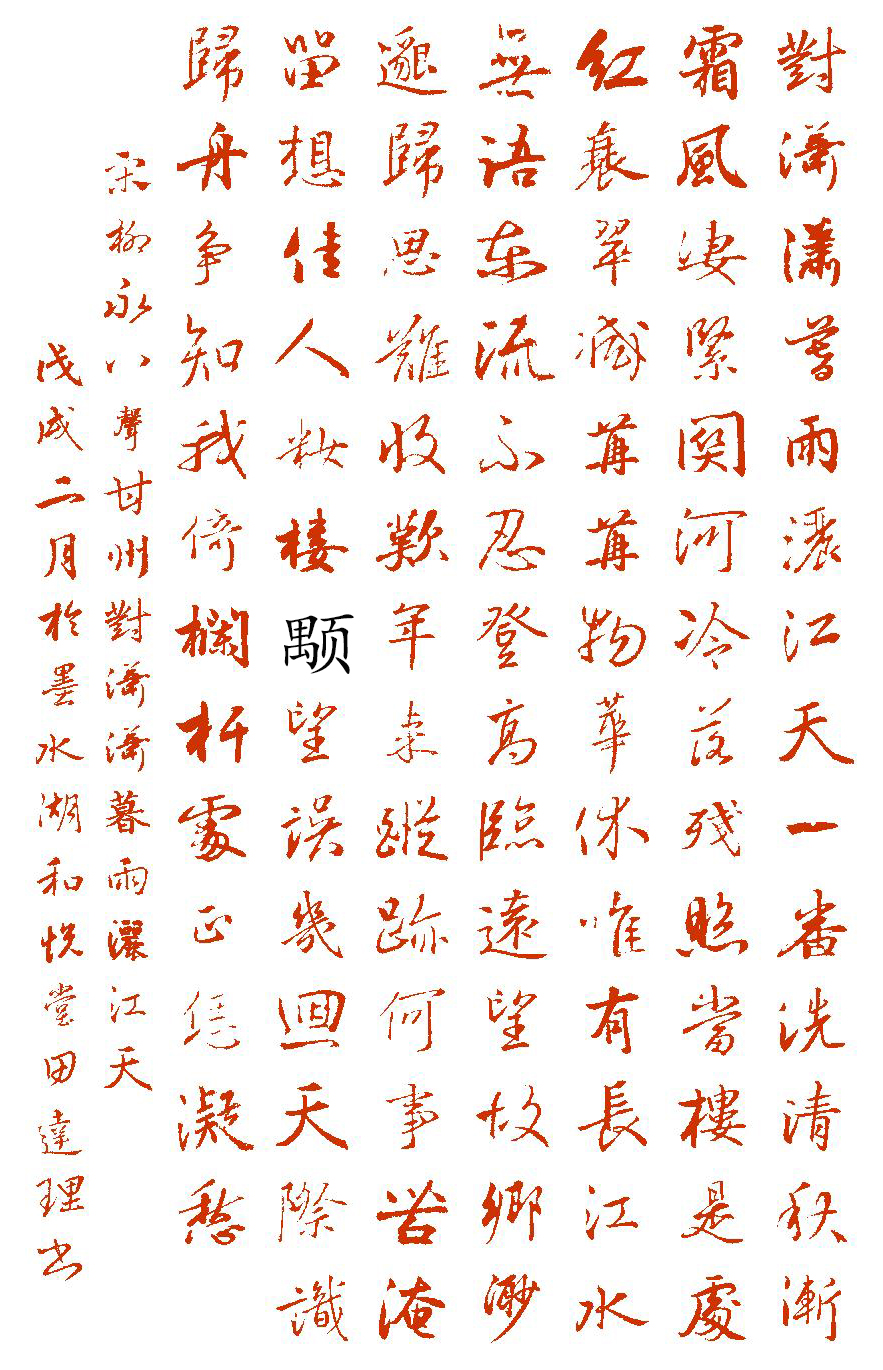 對瀟瀟暮雨灑江天一番洗清秋漸
霜風凄緊關河冷落殘照當樓是處
紅衰翠減苒苒物華休唯有長江水
無語東流不忍登高臨遠望故鄉渺
邈歸思難收歎年來蹤跡何事苦淹
留想佳人粧樓颙望誤幾迴天際識
歸舟爭知我倚欄杆處正恁凝愁
宋柳永八聲甘州對瀟瀟暮雨灑江天
戊戌二月於墨水湖和悅堂田達理书